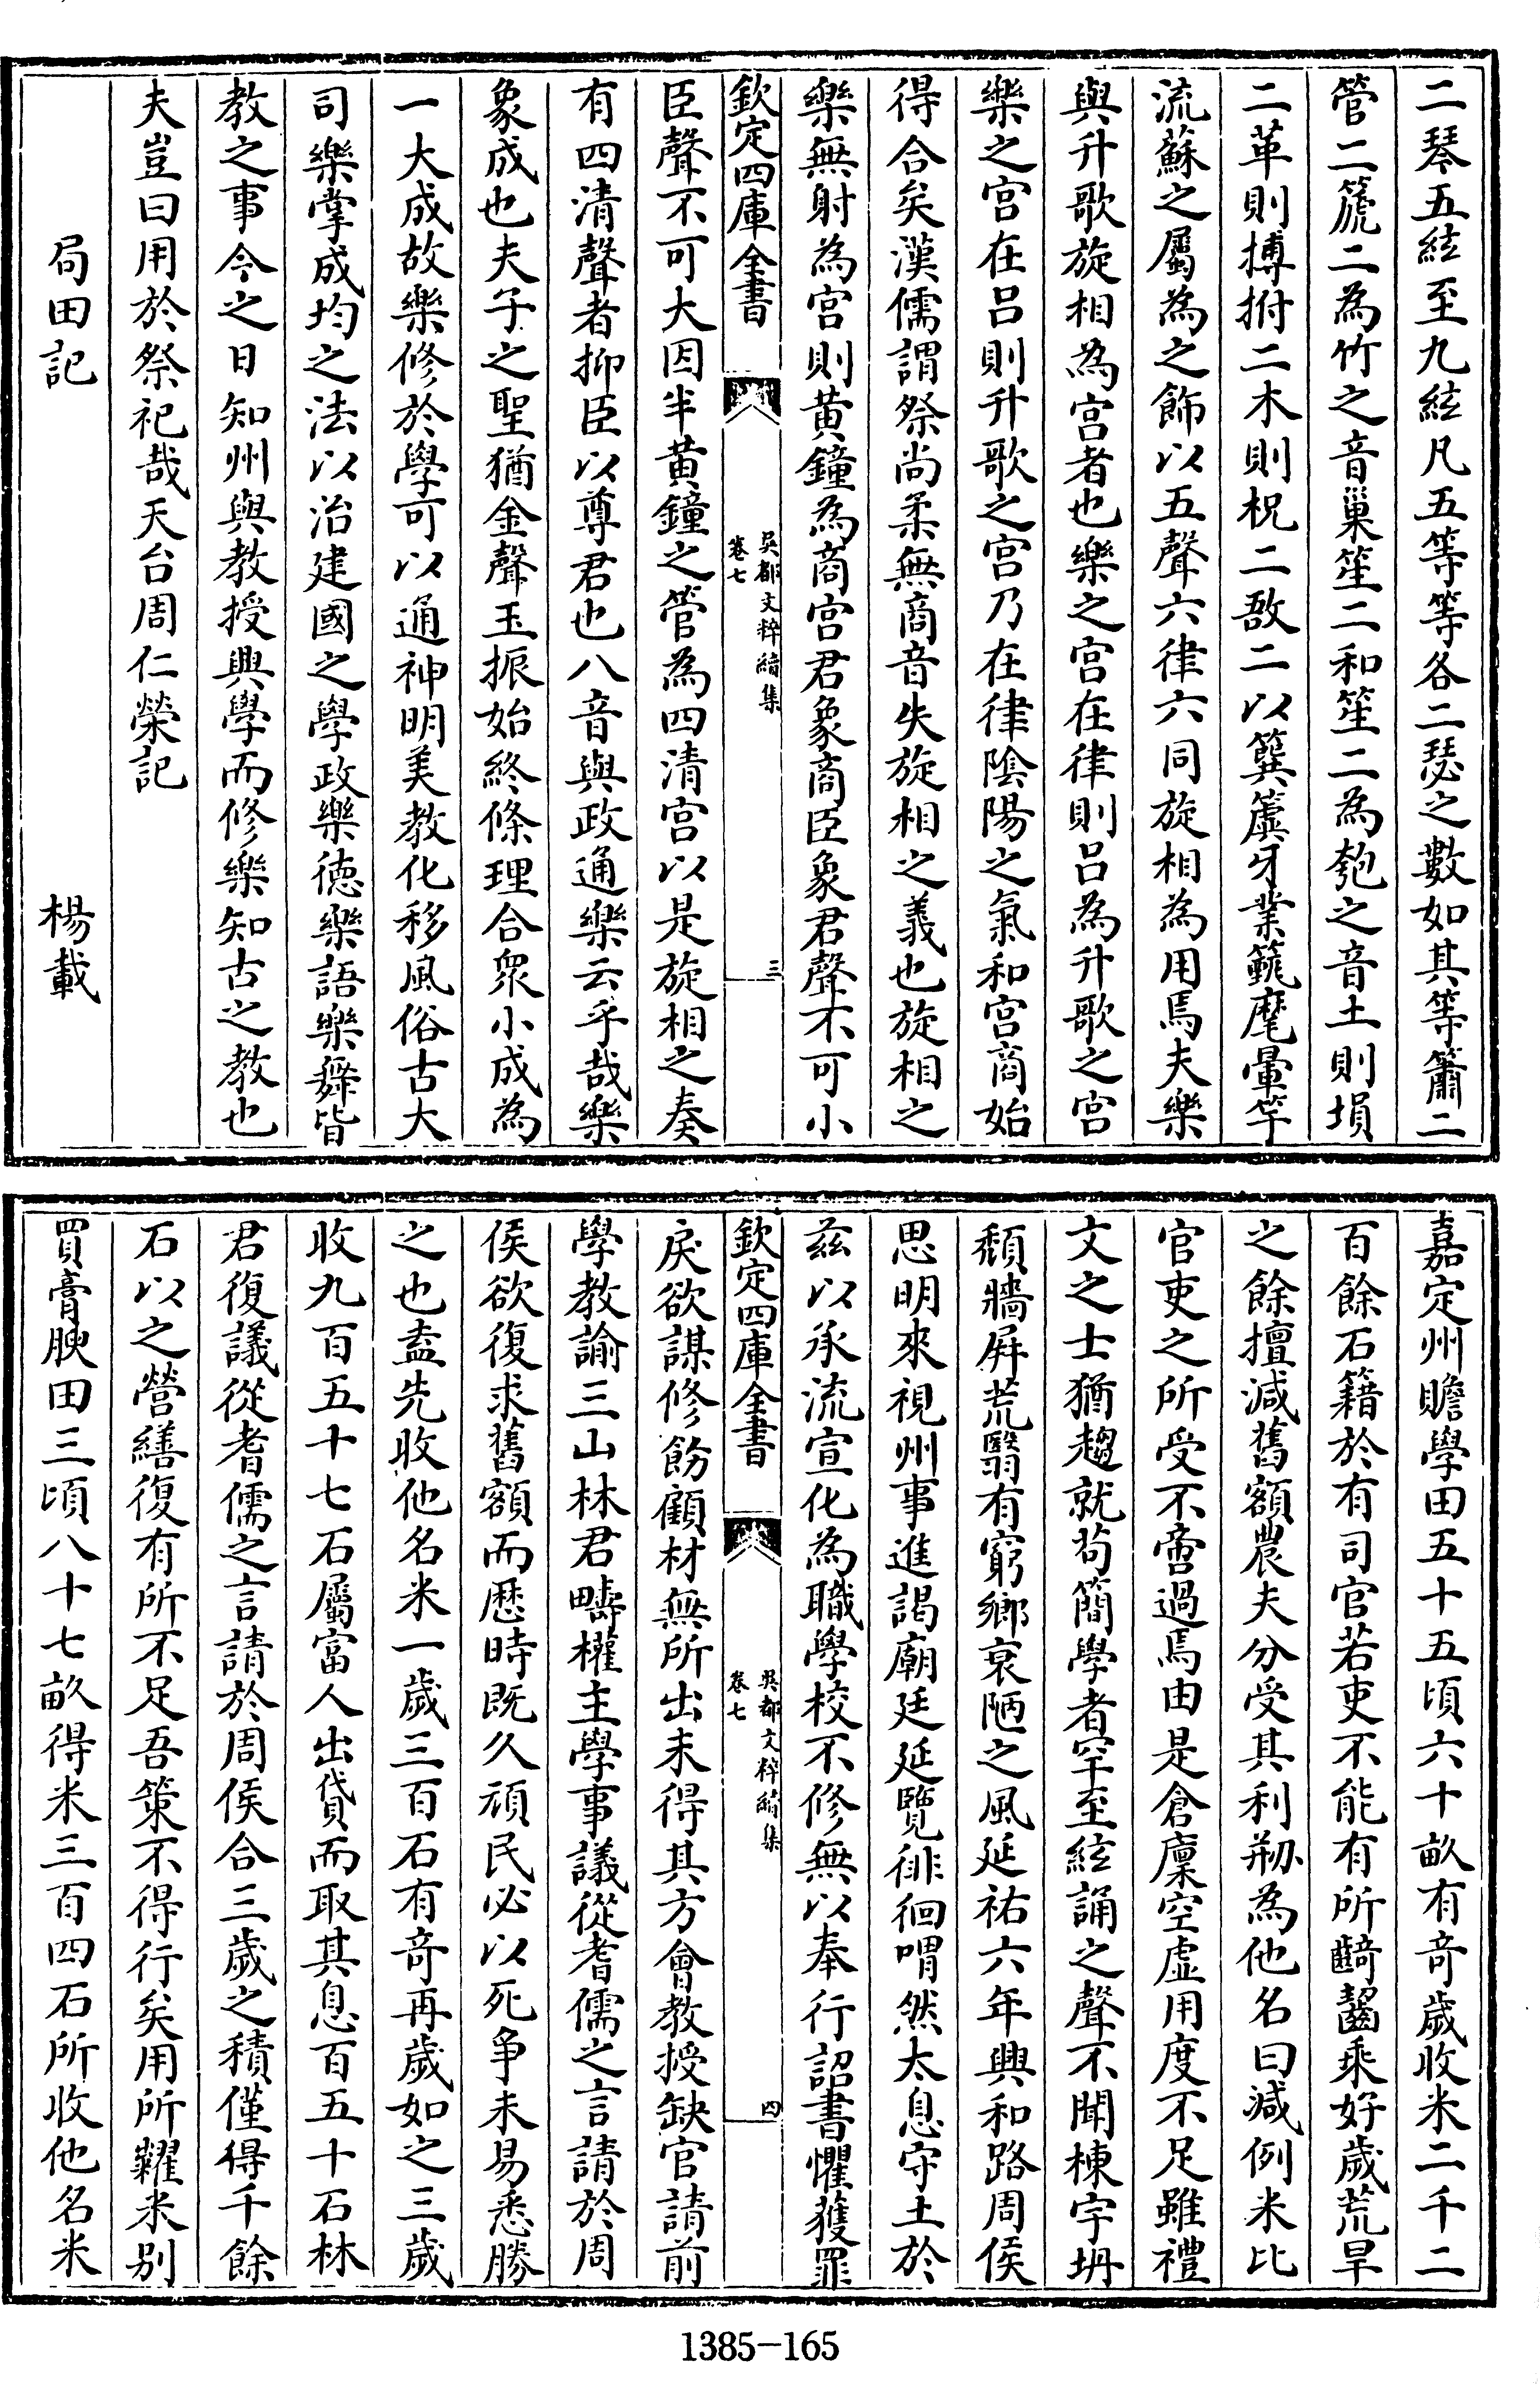 二琴五絃至九絃凡五等等各二瑟之數如其等簫二
管二箎二為竹之音巢笙二和笙二為匏之音土則塤
二革則搏拊二木則柷二敔二以簨簴牙業䡖麾暈竿
流蘇之屬為之飾以五聲六律六同旋相為用焉夫樂
與升歌旋相為宫者也樂之宫在律則吕為升歌之宫
樂之宫在吕則升歌之宫乃在律陰陽之氣和宫商始
得合矣漢儒謂祭尚柔無商音失旋相之義也旋相之
樂無射為宫則黄鐘為商宫君象商臣象君聲不可小
欽定四庫全書
吳都文粹續集
卷七
三
臣聲不可大因半黄鐘之管為四清宫以是旋相之奏
有四清聲者抑臣以尊君也八音與政通樂云乎哉樂
象成也夫子之聖猶金聲玉振始終條理合衆小成為
一大成故樂修於學可以通神明美教化移風俗古大
司樂掌成均之法以治建國之學政樂徳樂語樂舞皆
教之事今之日知州與教授興學而修樂知古之教也
夫豈曰用於祭祀哉天台周仁榮記
局田記 楊載
嘉定州贍學田五十五頃六十畝有奇歲收米二千二
百餘石籍於有司官若吏不能有所齮齧乘好歲荒旱
之餘擅減舊額農夫分受其利剏為他名曰減例米比
官吏之所受不啻過焉由是倉廩空虚用度不足雖禮
文之士猶趨就茍簡學者罕至絃誦之聲不聞棟宇坍
頹牆屏荒翳有窮鄉衰陋之風延祐六年興和路周侯
思明來視州事進謁廟廷延覽徘徊喟然太息守土於
兹以承流宣化為職學校不修無以奉行詔書懼獲罪
欽定四庫全書
吳都文粹續集
卷七
四
戾欲謀修飭顧材無所出未得其方會教授缺官請前
學教諭三山林君疇權主學事議從耆儒之言請於周
侯欲復求舊額而歴時既久頑民必以死争未易悉勝
之也盍先收他名米一歲三百石有奇再歲如之三歲
收九百五十七石屬富人出貸而取其息百五十石林
君復議從耆儒之言請於周侯合三歲之積僅得千餘
石以之營繕復有所不足吾策不得行矣用所糴米别
買膏腴田三頃八十七畝得米三百四石所收他名米
1385-165